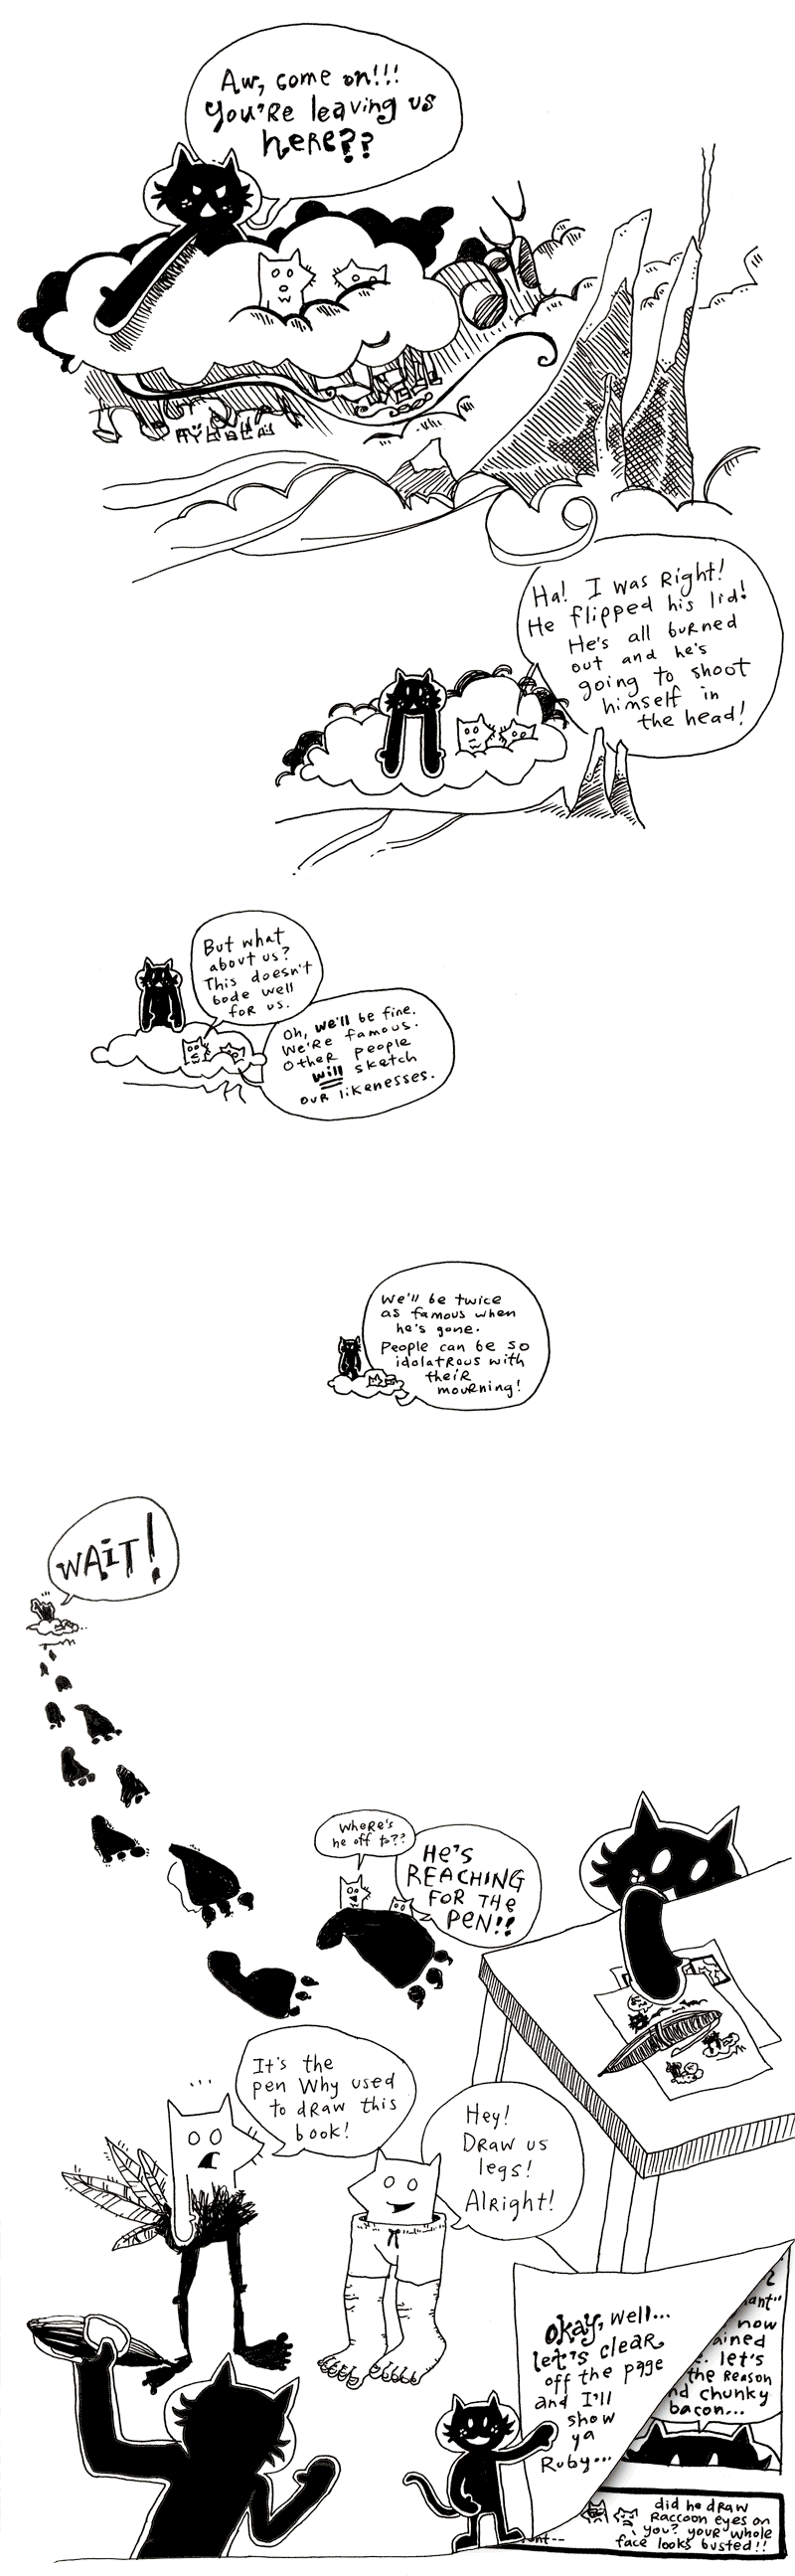 Aw, come on!!!
You're leaving us
here??
Ha! I was Right!
He flipped his lid!
He's all burned
out and he's
going to shoot
himself in
the head!
But what
about us?
This doesn't
bode well
for us.
Oh, we'll be fine.
We're famous.
Other people
will sketch
our likenesses.
We'll be twice
as famous when
he's gone.
People can be so
idolatrous with
their
mourning!
WAIT!
Where's
he off to??
He's
REACHING
FOR THE
PEN!!
It's the
pen Why used
to draw this
book!
Hey!
Draw us
legs!
Alright!
okay, well...
let's clear
off the page
and I'll
show
ya
Ruby...
ant"
now
ained
. let's
the Reason
nd chunky
bacon...
did he draw
Raccoon eyes on
you? your whole
face looks busted!!